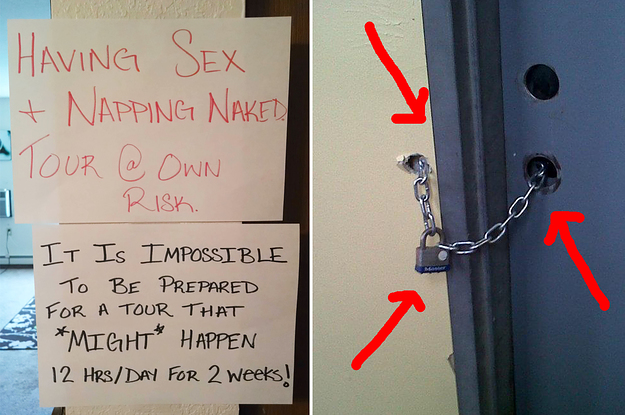 HAVING SEX
+ NAPPING NAKED.
TOUR @ OWN
RISK.
IT IS IMPOSSIBLE
TO BE PREPARED
FOR A TOUR THAT
*MIGHT* HAPPEN
12 HRS/DAY FOR 2 WEEKS!
Master